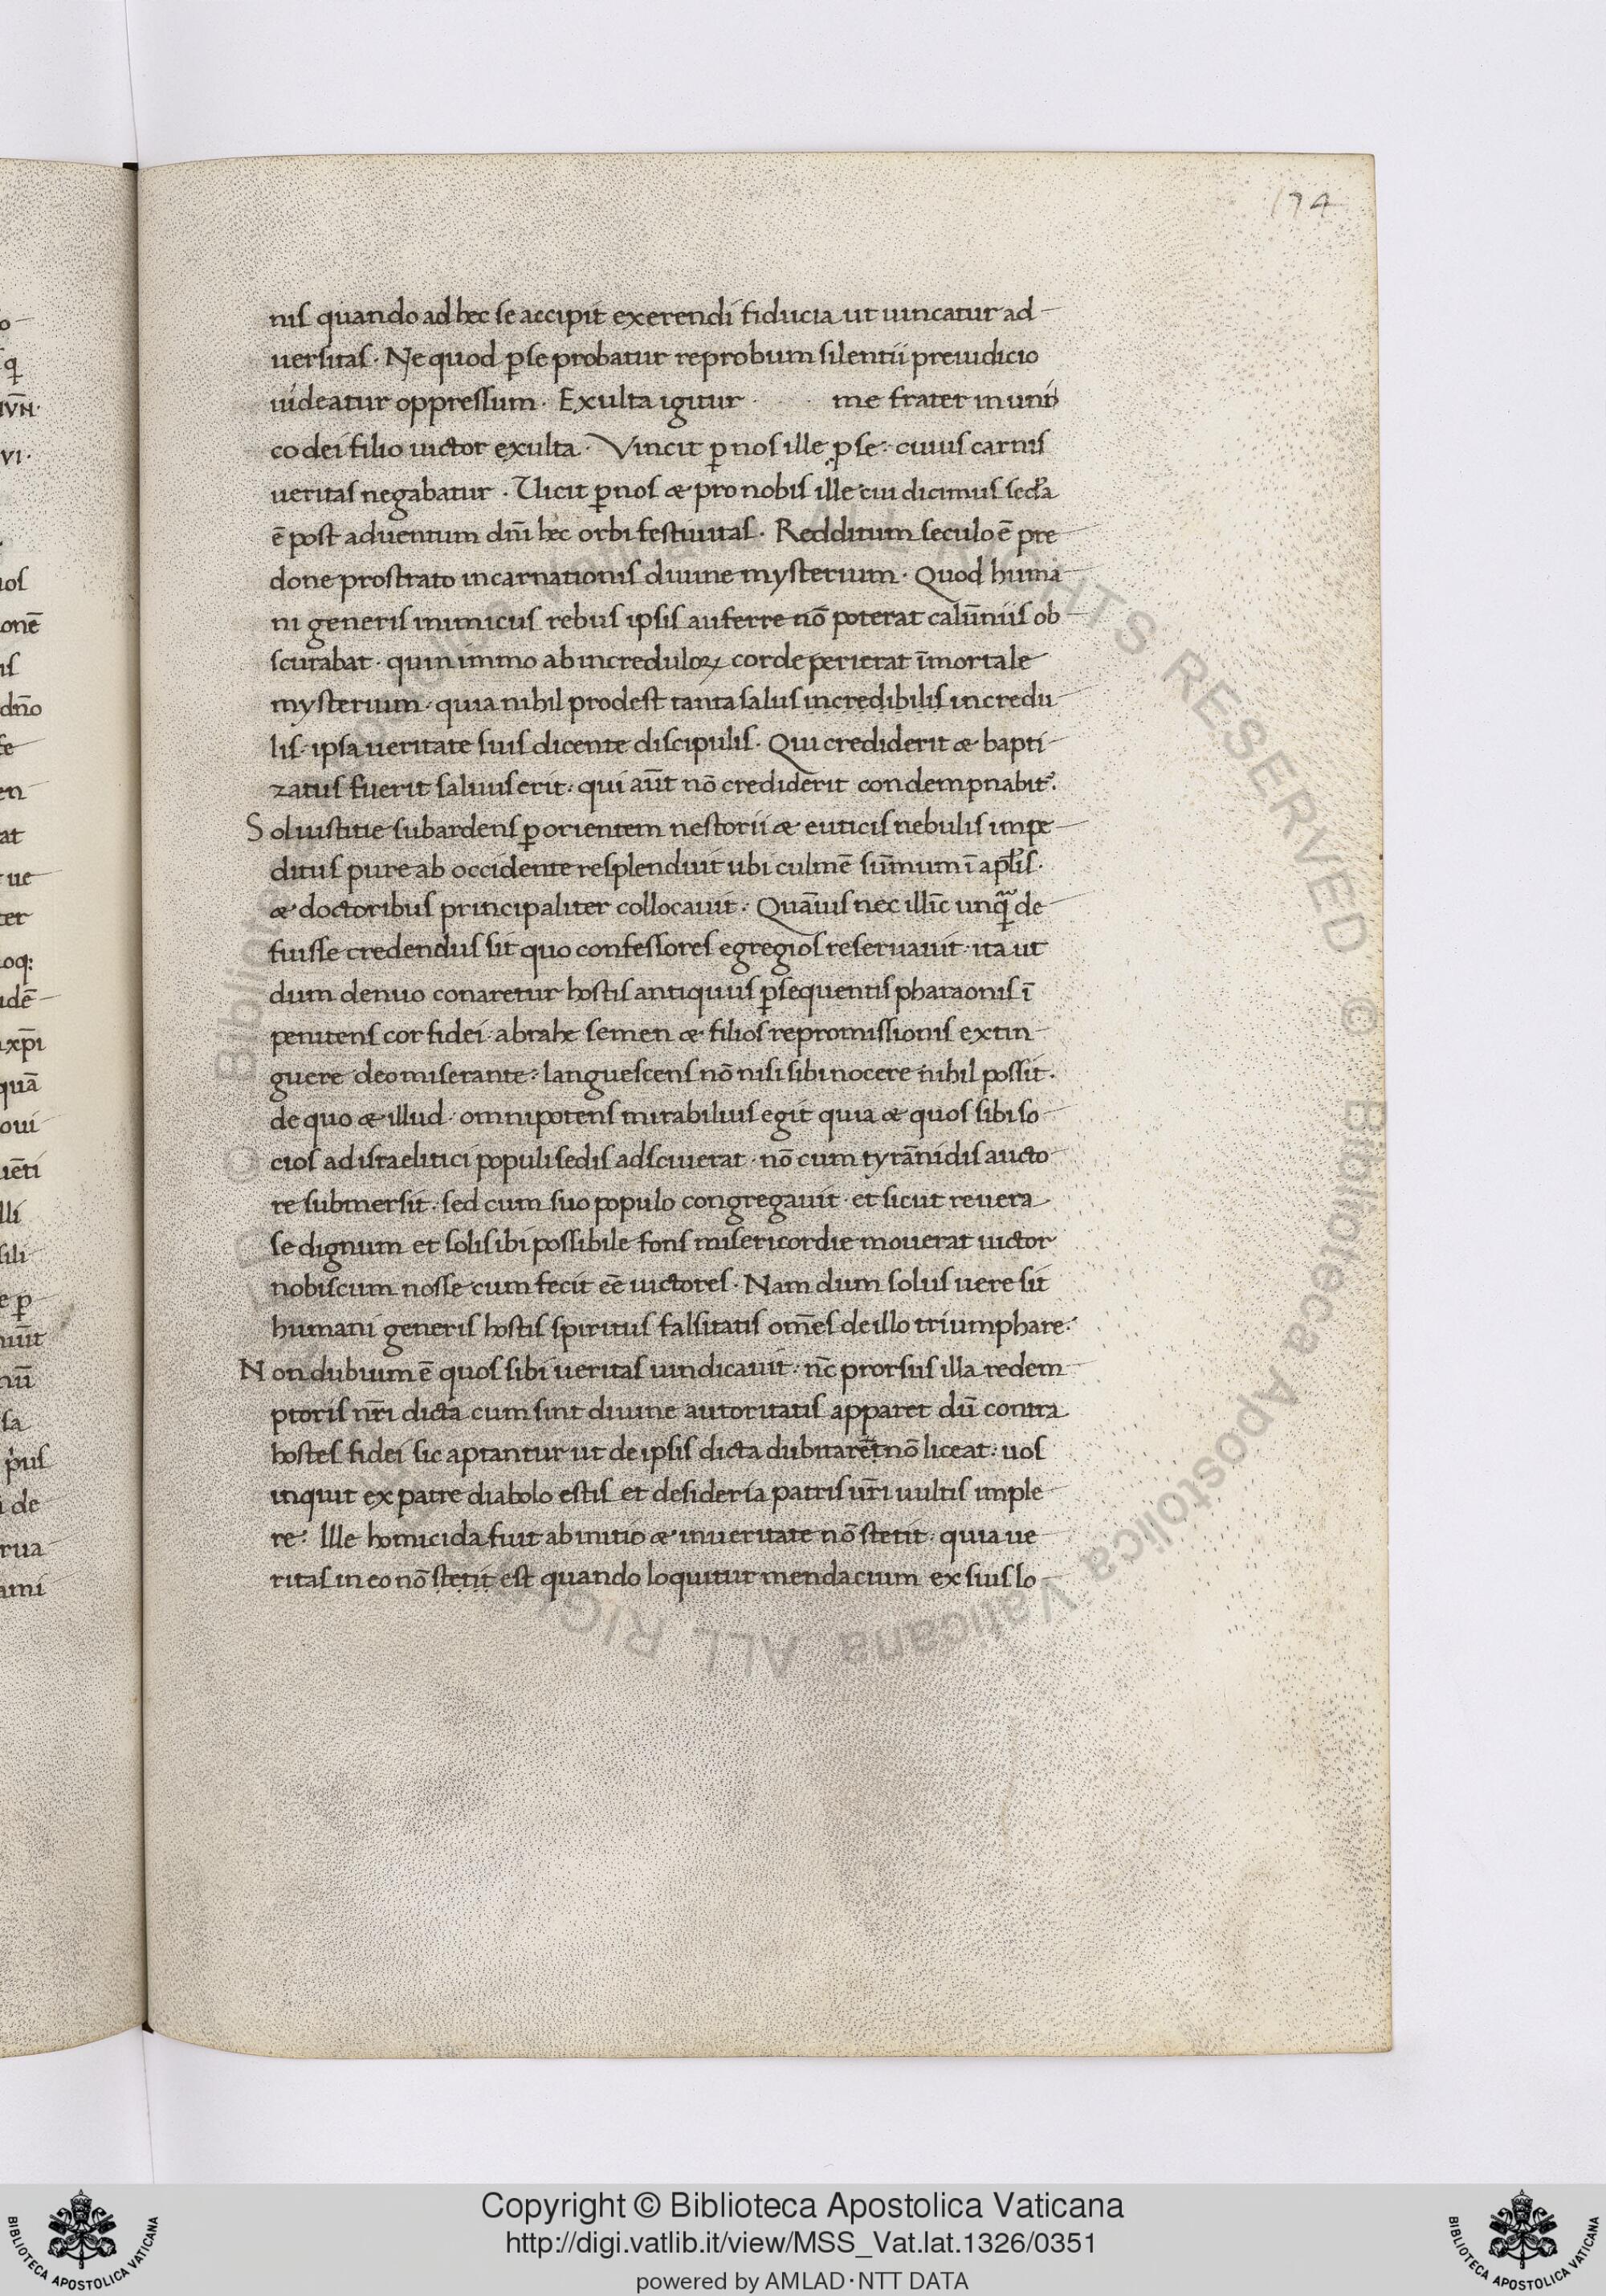 174
nis quando ad hec se accipit exerendi fiducia ut uincatur ad
uersitas · Ne quod p̱ se probatur reprobum silentii preiudicio
uideatur oppressum · Exulta igitur · · me frater in uni
co dei filio uictor exulta · Vincit p̱ nos ille p̱ se · cuius carnis
ueritas negabatur · Uicit p̱ nos & pro nobis ille cui dicimus
ē post aduentum dn̄i hec orbi festiuitas · Redditum seculo ē pre
done prostrato incarnationis diuine mysterium · Quod huma
ni generis inimicus rebus ipsis auferre nō poterat calūniis ob
scurabat · quin immo ab increduloꝝ corde perierat īmortale
mysterium · quia nihil prodest tanta salus incredibilis incredu
lis · ipsa ueritate suis dicente discipulis · Qui crediderit & bapti
zatus fuerit saluus erit · qui aūt nō crediderit condempnabit᷑.
Sol iustitie subardens p̱ orientem nestorii & euticis nebulis impe
ditus pure ab occidente resplenduit ubi culmē sūmum ī apl̄is ·
& doctoribus principaliter collocauit · Quāuis nec illīc unq̄ de
fuisse credendus sit quo confessores egregios reseruauit · ita ut
dum denuo conaretur hostis antiquus p̱sequentis pharaonis ī
penitens cor fidei · abrahe semen & filios repromissionis extin
guere deo miserante · languescens nō nisi sibi nocere nihil possit ·
de quo & illud · omnipotens mirabilius egit quia & quos sibi so
cios ad israelitici populi sedis adsciuerat · nō cum tyrānidis aucto
re submersit · sed cum suo populo congregauit · et sicut reuera
se dignum et soli sibi possibile fons misericordie mouerat uictor
nobiscum nosse cum fecit eē uictores · Nam dum solus uere sit
humani generis hostis spiritus falsitatis om̄es de illo triumphare ·
Non dubium ē quos sibi ueritas uindicauit · nc̄ prorsus illa redem
ptoris nr̄i dicta cum sint diuine autoritatis apparet dū contra
hostes fidei sic aptantur ut de ipsis dicta dubitare nō liceat · uos
inquit ex patre diabolo estis et desideria patris ur̄i uultis imple
re · Ille homicida fuit ab initio & in ueritate nō stetit · quia ue
ritas in eo nō stetit est quando loquitur mendacium ex suis lo
Copyright © Biblioteca Apostolica Vaticana
http://digi.vatlib.it/view/MSS_Vat.lat.1326/0351
powered by AMLAD·NTT DATA
BIBLIOTECA APOSTOLICA VATICANA
BIBLIOTECA APOSTOLICA VATICANA